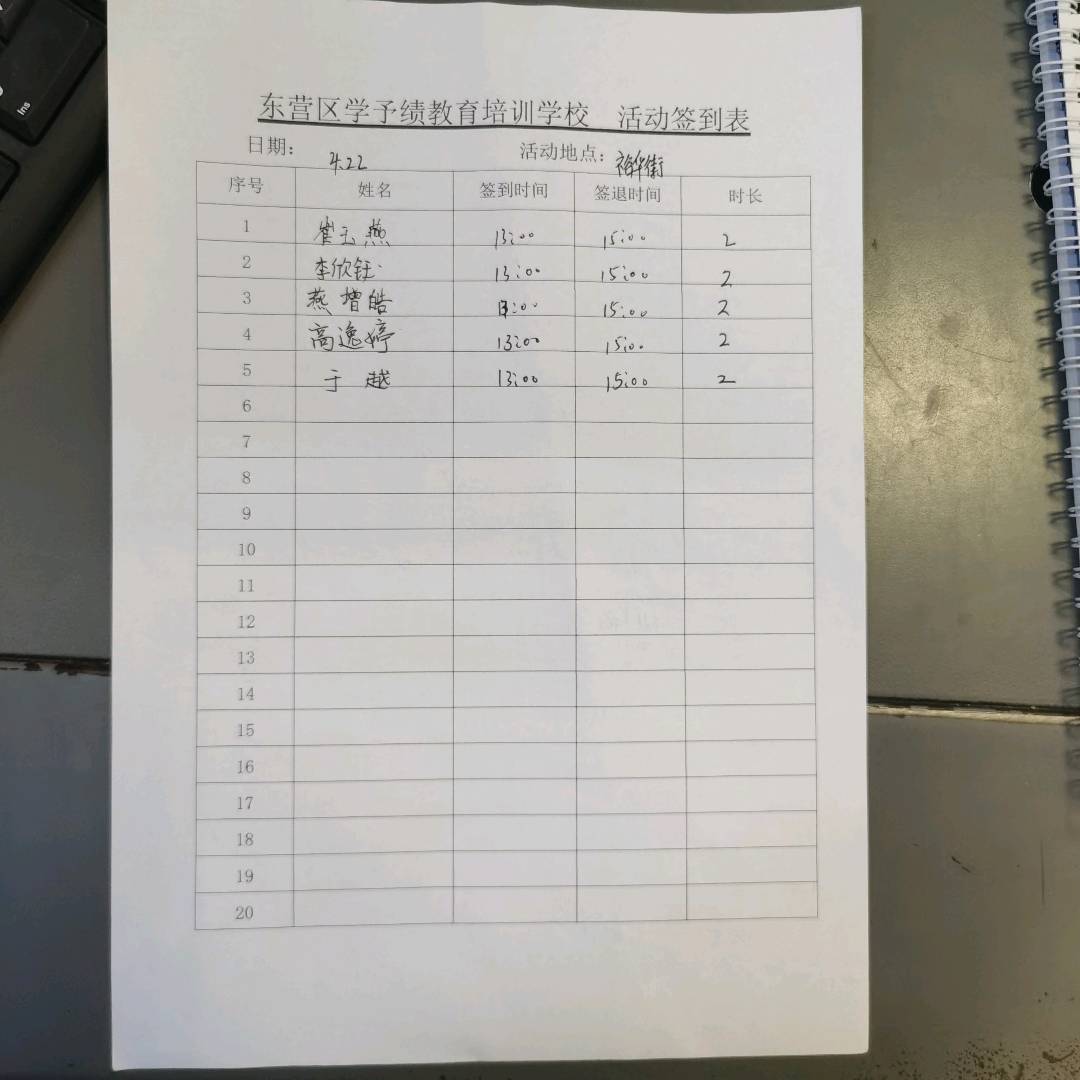 Ins
东营区学予绩教育培训学校 活动签到表
日期: 4.22 活动地点: 裕华街
序号 姓名 签到时间 签退时间 时长
1 崔玉燕 13:00 15:00 2
2 李欣钰 13:00 15:00 2
3 燕增皓 13:00 15:00 2
4 高逸婷 13:00 15:00 2
5 于越 13:00 15:00 2
6
7
8
9
10
11
12
13
14
15
16
17
18
19
20